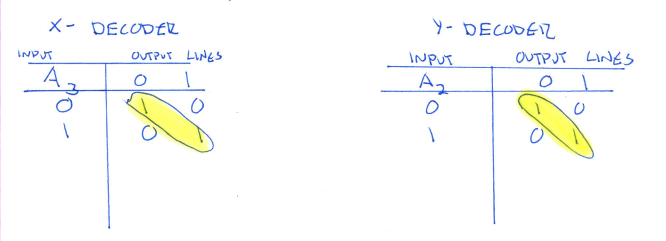 X- DECODER
INPUT OUTPUT LINES
A3 0 1
0 1 0
1 0 1
Y- DECODER
INPUT OUTPUT LINES
A2 0 1
0 1 0
1 0 1